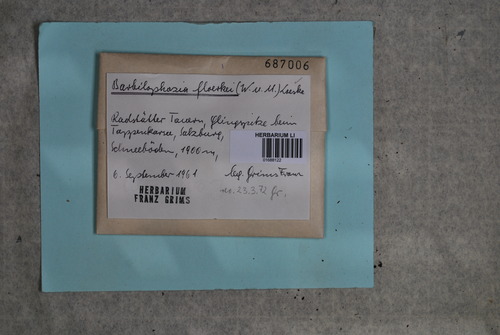 687006
Barbilophozia floerkei (W. u. M.) Loeske
Radstädter Tauern, Glingspitze beim
Tappenkarsee, Salzburg,
Schneeböden, 1900 m,
HERBARIUM LI
6. September 1961
leg. Grims Franz
HERBARIUM
FRANZ GRIMS
23.3.72 Gr.